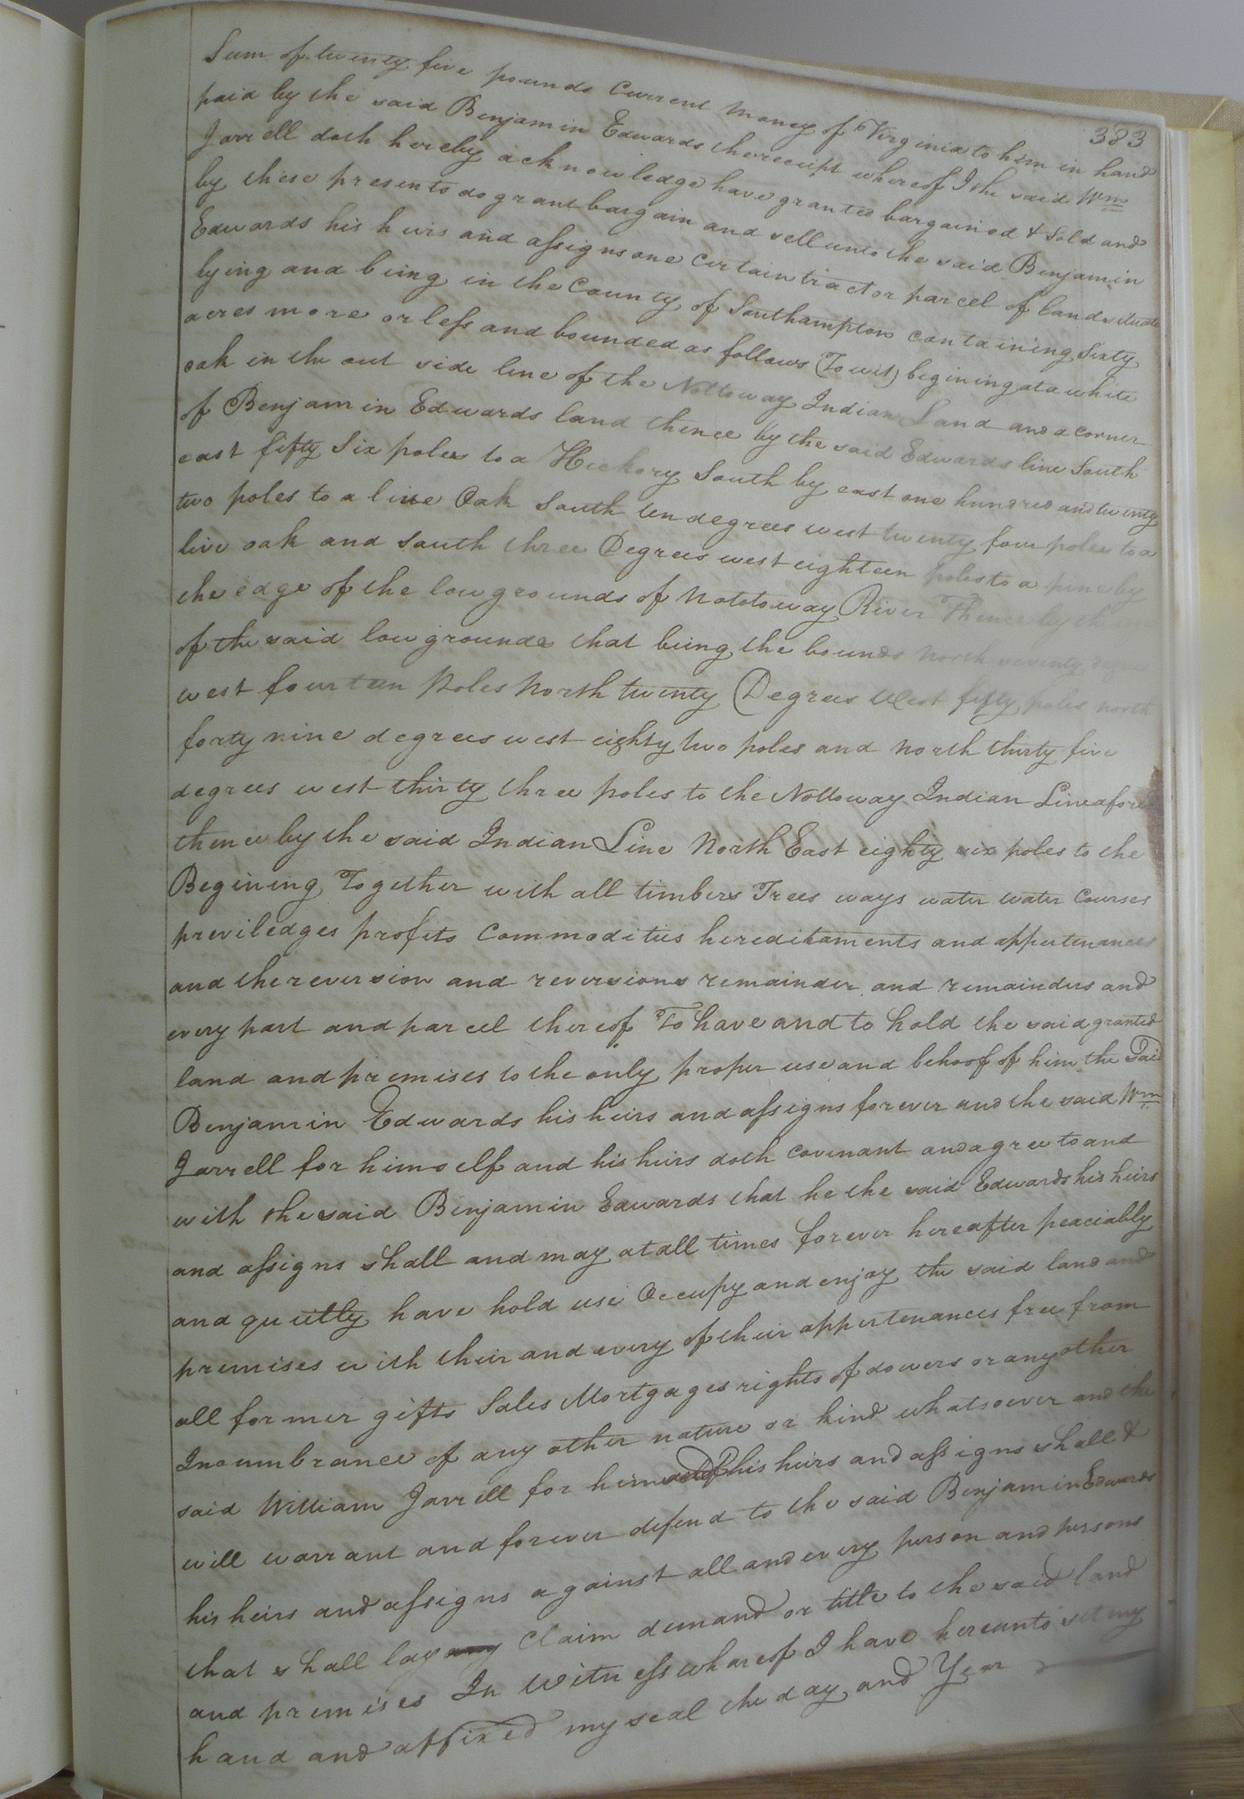 383
Sum of twenty five pounds Current money of Virginia to him in hand
paid by the said Benjamin Edwards the receipt whereof I the said Wm
Jarrell doth hereby acknowledge have granted bargained & Sold and
by these presents do grant bargain and sell unto the said Benjamin
Edwards his heirs and assigns one certain tract or parcel of land situate
lying and being in the County of Southampton containing Sixty
acres more or less and bounded as follows (Towit) begining at a white
oak in the out side line of the Nottoway Indian Land and a corner
of Benjamin Edwards land thence by the said Edwards line South
east fifty Six poles to a Hickory South by east one hundred and twenty
two poles to a live Oak South ten degrees west twenty four poles to a
live oak and South three Degrees west eighteen poles to a pine by
the edge of the low grounds of Nototoway River Thence by th
of the said low grounds that being the bounds North seventy
west fourteen Poles North twenty Degrees West fifty poles north
forty nine degrees west eighty two poles and north thirty five
degrees west thirty three poles to the Nottoway Indian Line afore
thence by the said Indian Line North East eighty six poles to the
Begining Together with all timbers Trees ways water water Courses
previledges profits Commodities hereditaments and appertenances
and the reversion and reversions remainder and remainders and
every part and parcel thereof To have and to hold the said granted
land and premises to the only proper use and behoof of him the Said
Benjamin Edwards his heirs and assigns forever and the said Wm
Jarrell for himself and his heirs doth covenant and agree to and
with the said Benjamin Edwards that he the said Edwards his heirs
and assigns shall and may at all times forever hereafter peaciably
and quietly have hold use Occupy and enjoy the said land and
premises with their and every of their appertenances free from
all former gifts Sales Mortgages rights of dowers or any other
Incumbrance of any other nature or kind whatsoever and the
said William Jarrell for himself his heirs and assigns shall &
will warrant and forever defend to the said Benjamin Edwards
his heirs and assigns against all and every person and persons
that shall lay any Claim demand or title to the said land
and premises In Witness whareof I have hereunto set my
hand and affixed my seal the day and Year